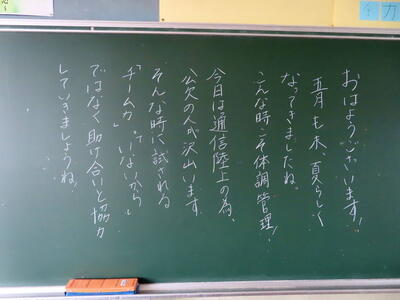 おはようございます!
五月も末、夏らしく
なってきましたね。
こんな時こそ体調管理!
今日は通信陸上の為、
公欠の人が沢山います
そんな時に試される
「チーム力」“いないから”
ではなく助け合いと協力
していきましょうね!
全力